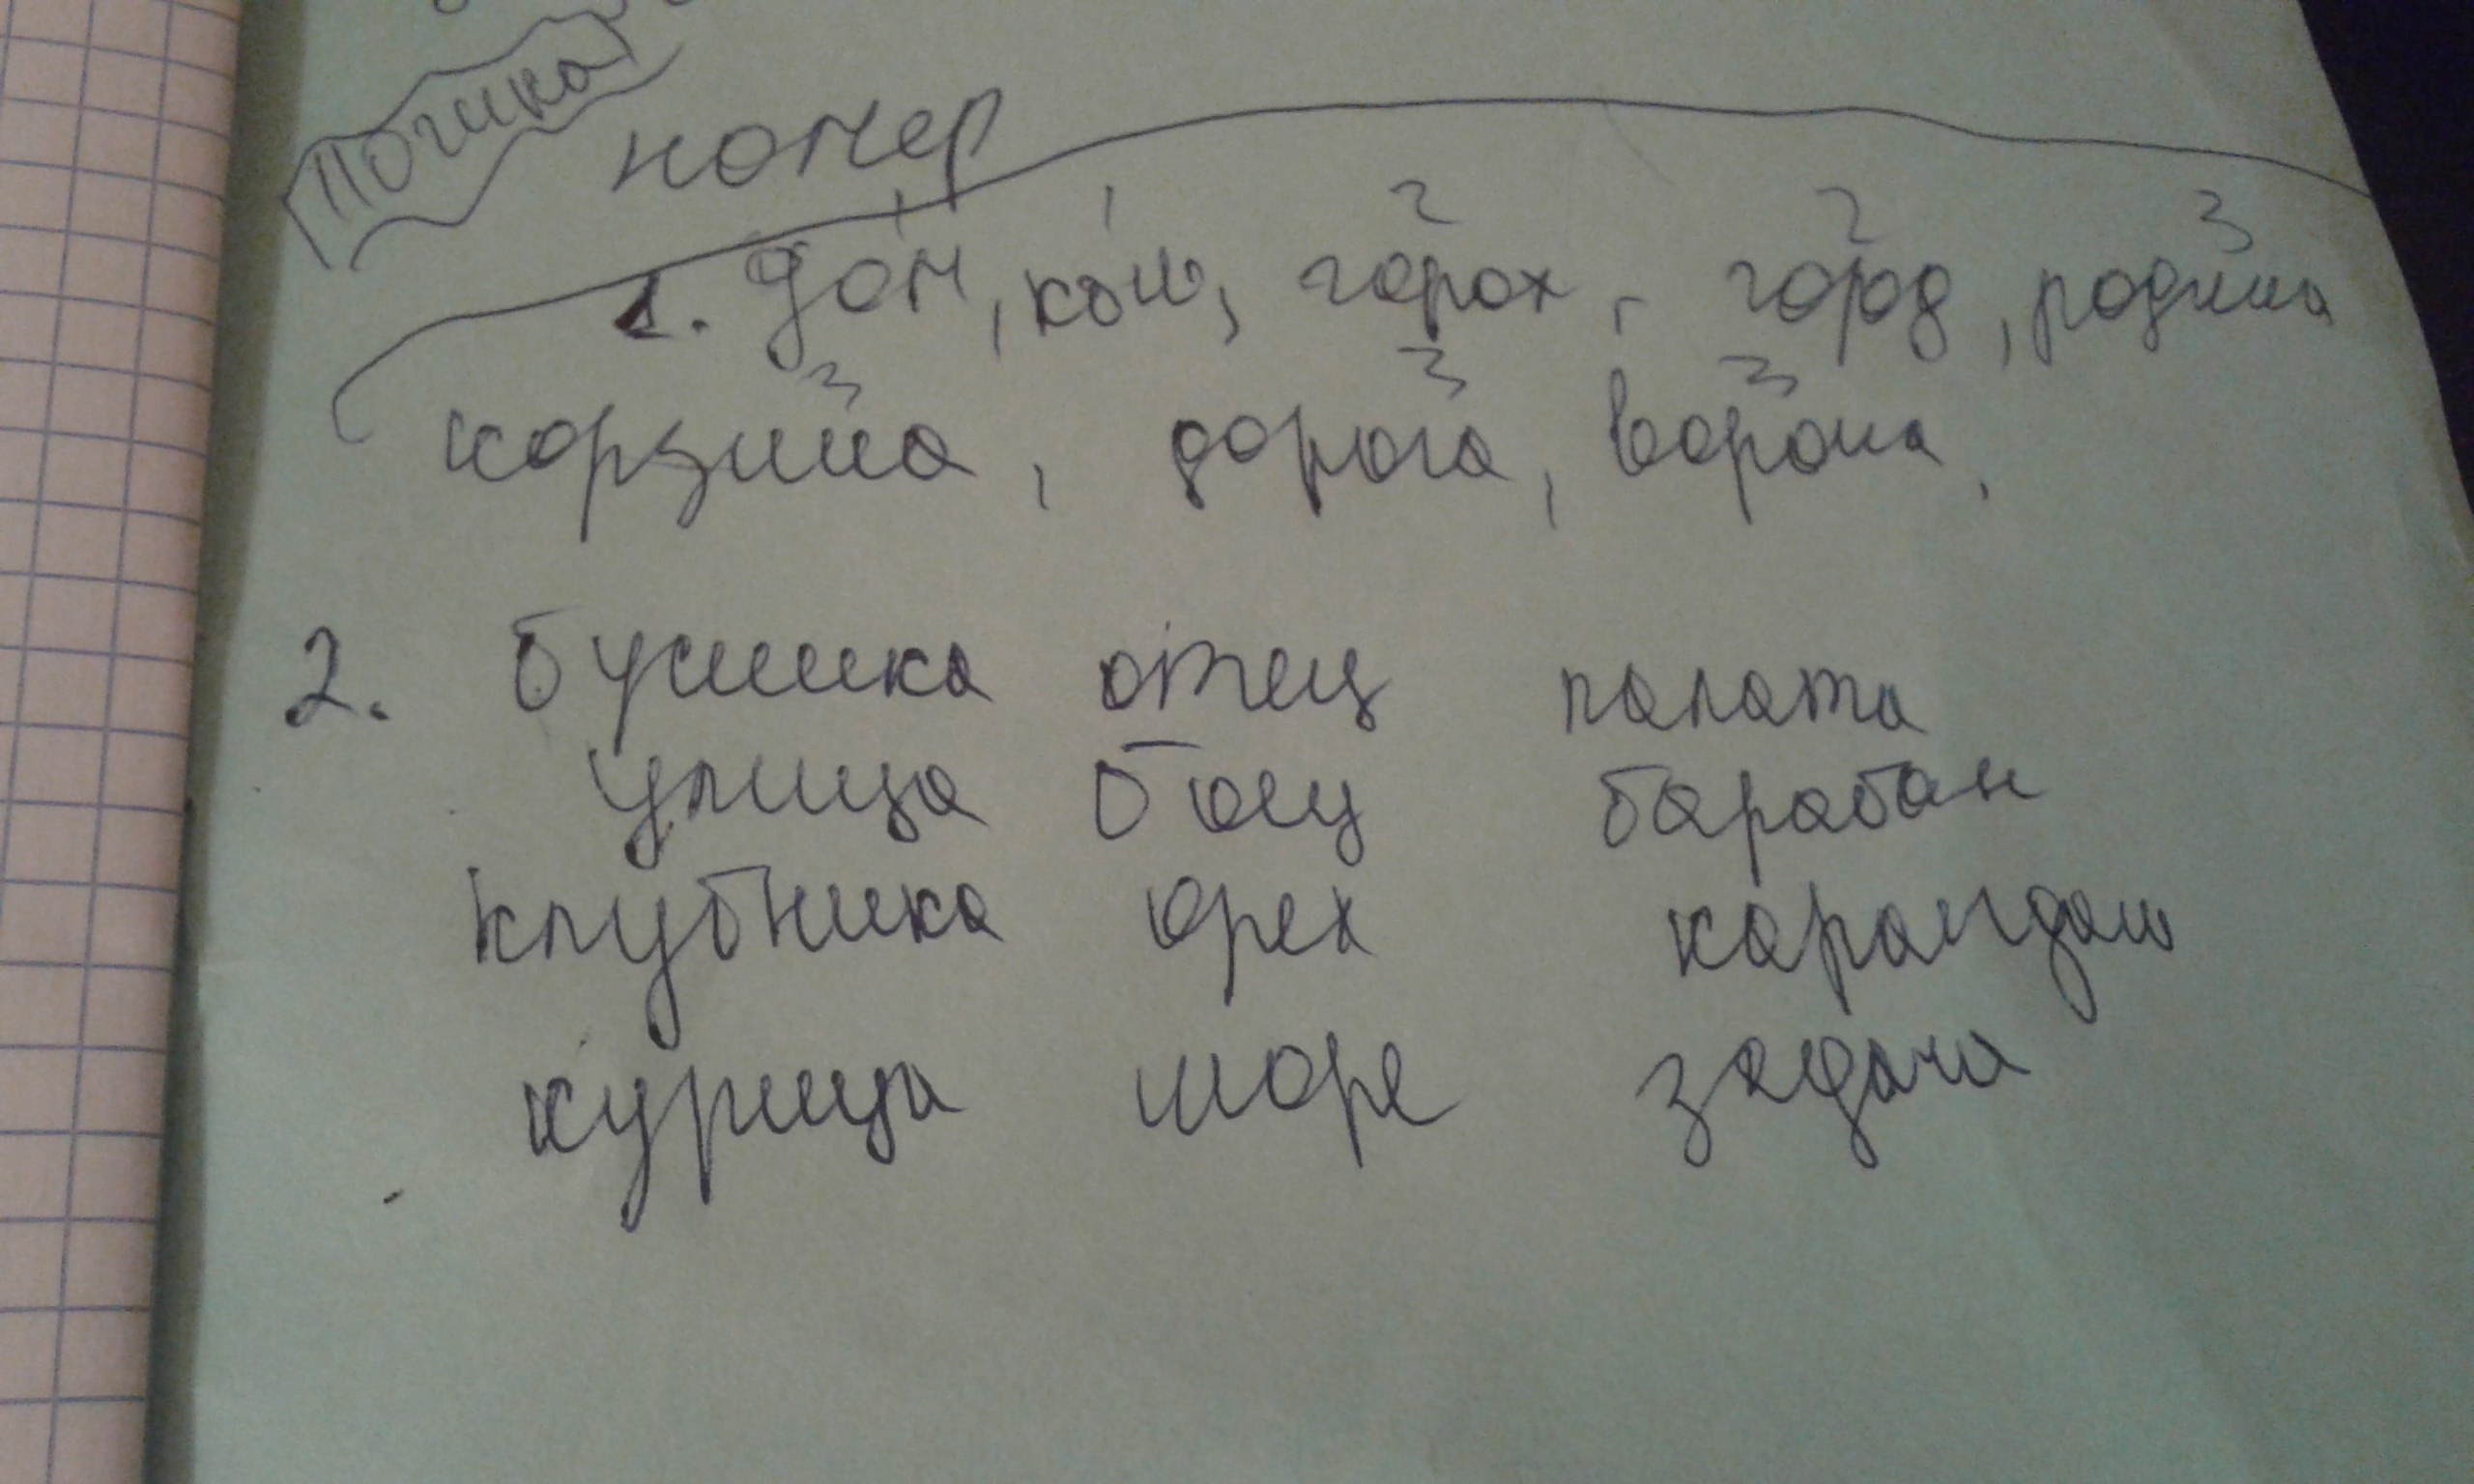 Логика
номер
1 1 2 2 3
1. дом, кот, горох, город, родина
3 3 3
корзина, дорога, ворона,
2. бушика отец палата
улица боец барабан
клубника орех карандаш
курица море задача